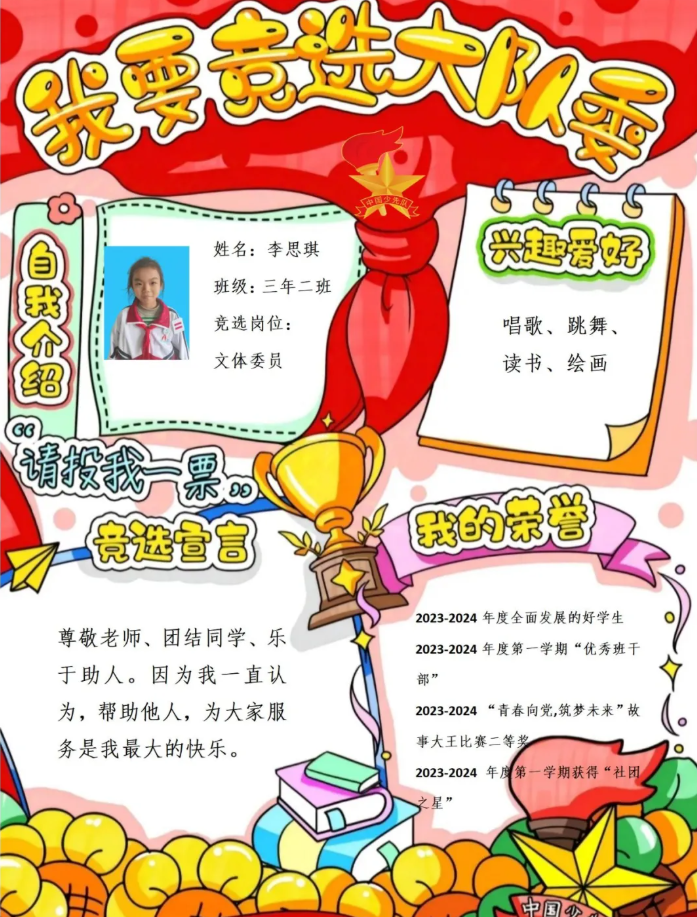 我要竞选大队委
中国少先队
自我介绍
姓名：李思琪
班级：三年二班
竞选岗位：
文体委员
兴趣爱好
唱歌、跳舞、
读书、绘画
“请投我一票”
竞选宣言
尊敬老师、团结同学、乐
于助人。因为我一直认
为，帮助他人，为大家服
务是我最大的快乐。
我的荣誉
2023-2024 年度全面发展的好学生
2023-2024 年度第一学期“优秀班干
部”
2023-2024 “青春向党,筑梦未来”故
事大王比赛二等奖
2023-2024 年度第一学期获得“社团
之星”
中国少